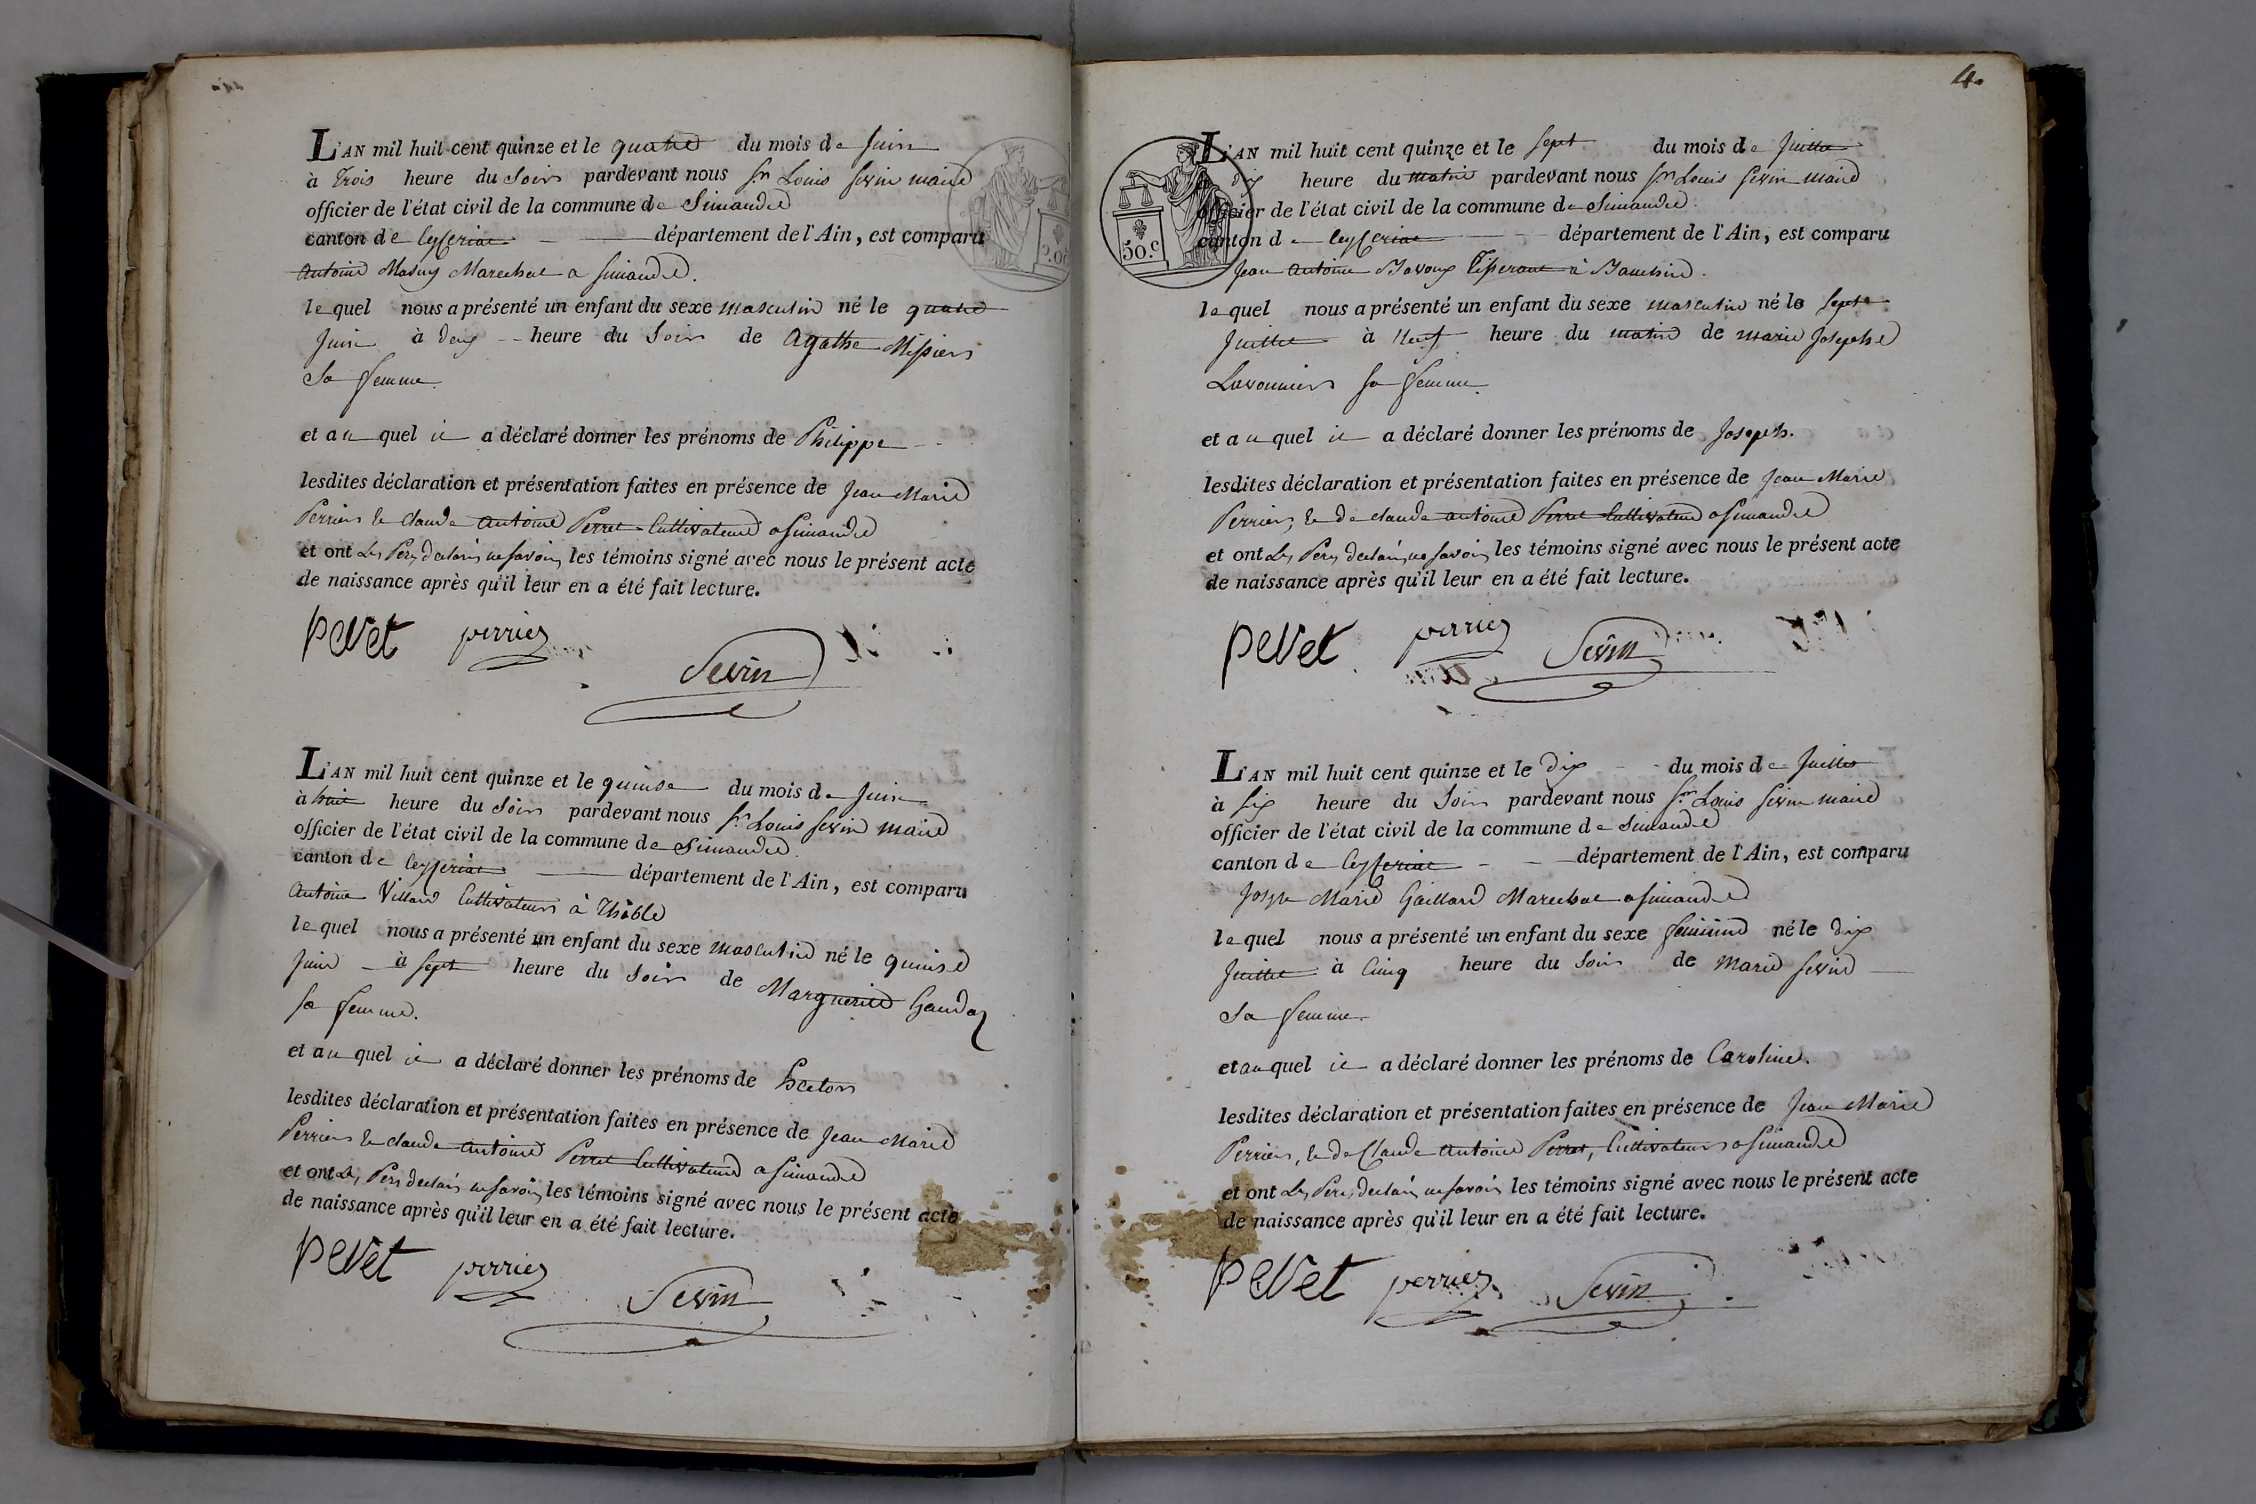 L'AN mil huit cent quinze et le quatre du mois de Juin
à Trois heure du Soir pardevant nous Sr. Louis Sevin maire
officier de l'état civil de la commune de Simandre
canton de Ceyseriat département de l'Ain, est comparu
Antoine Marechal a Simandre.
lequel nous a présenté un enfant du sexe masculin né le quatre
Juin à deux heure du Soir de Agathe
Sa femme.
et au quel il a déclaré donner les prénoms de Philippe
lesdites déclaration et présentation faites en présence de Jean Marie
Perrier & Claude Antoine Perret Cultivateurs a Simandre
et ont les témoins signé avec nous le présent acte
de naissance après qu'il leur en a été fait lecture.
pevet perrier
Sevin
L'AN mil huit cent quinze et le quinse du mois de Juin
à huit heure du Soir pardevant nous Sr. Louis Sevin maire
officier de l'état civil de la commune de Simandre.
canton de Ceyseriat département de l'Ain, est comparu
Antoine Villard Cultivateur à Thiole
lequel nous a présenté un enfant du sexe masculin né le quinse
Juin à sept heure du Soir de Marguerite
sa femme.
et au quel il a déclaré donner les prénoms de Hector
lesdites déclaration et présentation faites en présence de Jean Marie
Perrier & Claude Antoine Perret Cultivateurs a Simandre
et ont les témoins signé avec nous le présent acte
de naissance après qu'il leur en a été fait lecture.
pevet perrier
Sevin
4.
50.c
L'AN mil huit cent quinze et le sept du mois de Juillet
à dix heure du matin pardevant nous Sr. Louis Sevin maire
officier de l'état civil de la commune de Simandre.
canton de Ceyseriat département de l'Ain, est comparu
Jean Antoine Bavoux Tisserant à
lequel nous a présenté un enfant du sexe masculin né le sept
Juillet à Neuf heure du matin de marie Josephe
sa femme.
et au quel il a déclaré donner les prénoms de Joseph.
lesdites déclaration et présentation faites en présence de Jean Marie
Perrier, & de Claude Antoine Perret Cultivateurs a Simandre
et ont les témoins signé avec nous le présent acte
de naissance après qu'il leur en a été fait lecture.
pevet perrier Sevin
L'AN mil huit cent quinze et le dix du mois de Juillet
à Six heure du Soir pardevant nous Sr. Louis Sevin maire
officier de l'état civil de la commune de Simandre
canton de Ceyseriat département de l'Ain, est comparu
Joseph Marie Gaillard Marechal a Simandre
lequel nous a présenté un enfant du sexe feminin né le dix
Juillet à Cinq heure du Soir de Marie Sevin
Sa femme.
et au quel il a déclaré donner les prénoms de Caroline.
lesdites déclaration et présentation faites en présence de Jean Marie
Perrier, & de Claude Antoine Perret, Cultivateurs a Simandre
et ont les témoins signé avec nous le présent acte
de naissance après qu'il leur en a été fait lecture.
pevet perrier Sevin